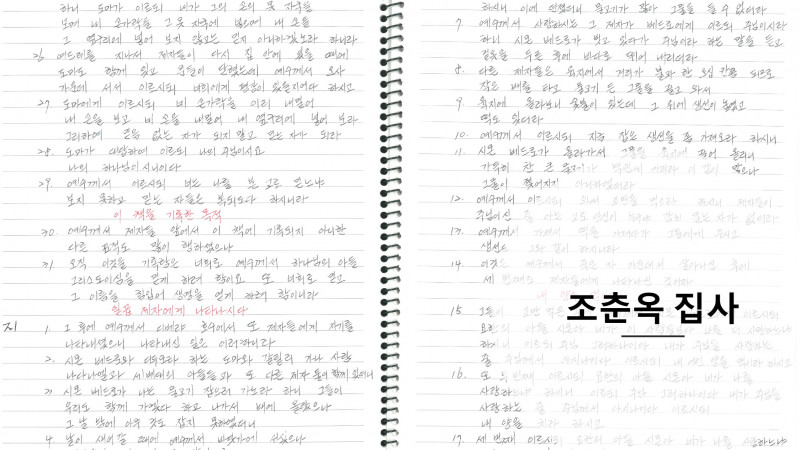 하니 도마가 이르되 내가 그의 손의 못 자국을
보며 내 손가락을 그 못 자국에 넣으며 내 손을
그 옆구리에 넣어 보지 않고는 믿지 아니하겠노라 하니라
26 여드레를 지나서 제자들이 다시 집 안에 있을 때에
도마도 함께 있고 문들이 닫혔는데 예수께서 오사
가운데 서서 이르시되 너희에게 평강이 있을지어다 하시고
27. 도마에게 이르시되 네 손가락을 이리 내밀어
내 손을 보고 네 손을 내밀어 내 옆구리에 넣어 보라
그리하여 믿음 없는 자가 되지 말고 믿는 자가 되라
28. 도마가 대답하여 이르되 나의 주님이시요
나의 하나님이시니이다
29. 예수께서 이르시되 너는 나를 본 고로 믿느냐
보지 못하고 믿는 자들은 복되도다 하시니라
이 책을 기록한 목적
30. 예수께서 제자들 앞에서 이 책에 기록되지 아니한
다른 표적도 많이 행하셨으나
31. 오직 이것을 기록함은 너희로 예수께서 하나님의 아들
그리스도이심을 믿게 하려 함이요 또 너희로 믿고
그 이름을 힘입어 생명을 얻게 하려 함이니라
일곱 제자에게 나타나시다
21 1. 그 후에 예수께서 디베랴 호수에서 또 제자들에게 자기를
나타내셨으니 나타내신 일은 이러하니라
2. 시몬 베드로와 디두모라 하는 도마와 갈릴리 가나 사람
나다나엘과 세베대의 아들들과 또 다른 제자 둘이 함께 있더니
3. 시몬 베드로가 나는 물고기 잡으러 가노라 하니 그들이
우리도 함께 가겠다 하고 나가서 배에 올랐으나
그 날 밤에 아무 것도 잡지 못하였더니
4 날이 새어갈 때에 예수께서 바닷가에 서셨으나
하시니 이에 던졌더니 물고기가 많아 그물을 들 수 없더라
7. 예수께서 사랑하시는 그 제자가 베드로에게 이르되 주님이시라
하니 시몬 베드로가 벗고 있다가 주님이라 하는 말을 듣고
겉옷을 두른 후에 바다로 뛰어 내리더라
8. 다른 제자들은 육지에서 거리가 불과 한 오십 칸쯤 되므로
작은 배를 타고 물고기 든 그물을 끌고 와서
9. 육지에 올라보니 숯불이 있는데 그 위에 생선이 놓였고
떡도 있더라
10. 예수께서 이르시되 지금 잡은 생선을 좀 가져오라 하시니
11. 시몬 베드로가 올라가서 그물을 육지에 끌어 올리니
가득히 찬 큰 물고기가 백쉰세 마리라 이 같이 많으나
그물이 찢어지지 아니하였더라
12. 예수께서 이르시되 와서 조반을 먹으라 하시니 제자들이
주님이신 줄 아는 고로 당신이 누구냐 감히 묻는 자가 없더라
13. 예수께서 가셔서 떡을 가져다가 그들에게 주시고
생선도 그와 같이 하시니라
14. 이것은 예수께서 죽은 자 가운데서 살아나신 후에
세 번째로 제자들에게 나타나신 것이라
15 그들이 조반 먹은
조춘옥 집사
16. 또 두 번째 이르시되 요한의 아들 시몬아 네가 나를
사랑하느냐 하시니 이르되 주님 그러하나이다 내가 주님을
사랑하는 줄 주님께서 아시나이다 이르시되
내 양을 치라 하시고
17. 세 번째 이르시되 요한의 아들 시몬아 네가 나를 사랑하느냐